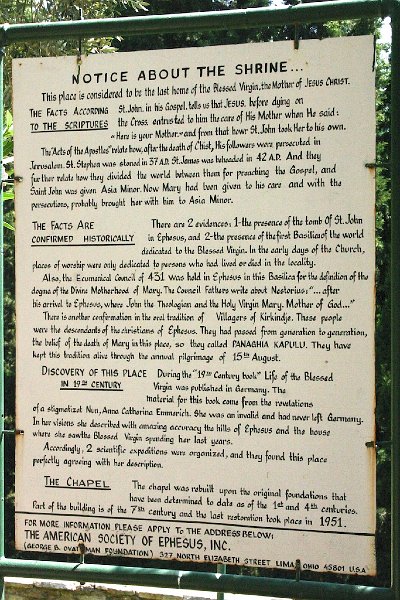 NOTICE ABOUT THE SHRINE...
This place is considered to be the last home of the Blessed Virgin, the Mother of JESUS CHRIST.
THE FACTS ACCORDING
TO THE SCRIPTURES
St. John, in his Gospel, tells us that JESUS, before dying on
the Cross, entrusted to him the care of His Mother when He said:
"Here is your Mother." and from that hour St. John took Her to his own.
The "Acts of the Apostles" relate how, after the death of Christ, His followers were persecuted in
Jerusalem. St. Stephen was stoned in 37 A.D. St. James was beheaded in 42 A.D. And they
further relate how they divided the world between them for preaching the Gospel, and
Saint John was given Asia Minor. Now Mary had been given to his care and with the
persecutions, probably brought her with him to Asia Minor.
THE FACTS ARE
CONFIRMED HISTORICALLY
There are 2 evidences: 1-the presence of the tomb Of St. John
in Ephesus, and 2-the presence of the first Basilica of the world
dedicated to the Blessed Virgin. In the early days of the Church,
places of worship were only dedicated to persons who had lived or died in the locality.
Also, the Ecumanical Council of 431 was held in Ephesus in this Basilica for the definition of the
dogma of the Divine Motherhood of Mary. The Council Fathers write about Nestorius: "... after
his arrival to Ephesus, where John the Theologian and the Holy Virgin Mary, Mother of God..."
There is another confirmation in the oral tradition of Villagers of Kirkindje. These people
were the descendants of the christians of Ephesus. They had passed from generation to generation,
the belief of the death of Mary in this place, so they called PANAGHIA KAPULU. They have
kept this tradition alive through the annual pilgrimage of 15th August.
DISCOVERY OF THIS PLACE
IN 19TH CENTURY
During the "19th Century book" Life of the Blessed
Virgin was published in Germany. The
material for this book come from the revelations
of a stigmatizet Nun, Anna Catherina Emmerich. She was an invalid and had never left Germany.
In her visions she described with amazing accuracy the hills of Ephesus and the house
where she sawthe Blessed Virgin spending her last years.
Accordingly, 2 scientific expeditions were organized, and they found this place
perfectly agreeing with her description.
THE CHAPEL
The chapel was rebuilt upon the original foundations that
have been determined to date as of the 1st and 4th centuries.
Part of the building is of the 7th century and the last restoration took place in 1951.
FOR MORE INFORMATION PLEASE APPLY TO THE ADDRESS BELOW:
THE AMERICAN SOCIETY OF EPHESUS, INC.
(GEORGE B. FOUNDATION) 327 NORTH ELIZABETH STREET LIMA, OHIO 45801 U.S.A